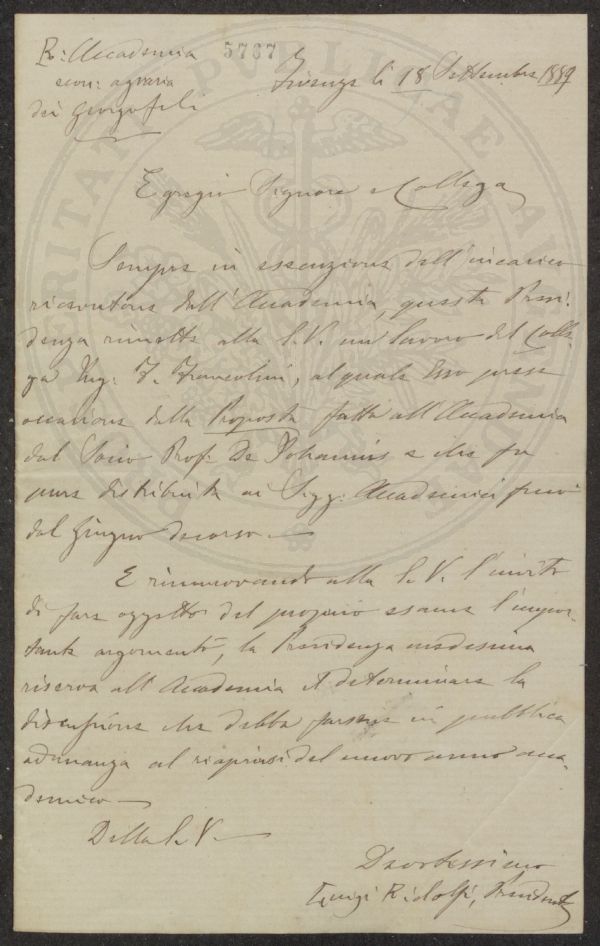 R: Accademia
econ: agraria
dei Georgofili
5767
Firenze li 18 Settembre 1889
Egregio Signore e Collega
Sempre in essenzione dell'incarico
ricevutone dall'Accademia, questa Presi-
denza rimette alla S.V. un lavoro del Colle-
ga Ing: F. Francolini, al quale Esso prese
occasione dalla Proposta fatta all'Accademia
dal Socio Prof: De Johannis e che fu
pure distribuita ai Sigg: Accademici fino
dal Giugno decorso.
E rinnuovando alla S.V. l'invito
di fare oggetto del proprio esame l'impor-
tante argomento, la Presidenza medesima
riserva all'Accademia il determinare la
discussione che debba farsene in pubblica
adunanza al riaprirsi del nuovo anno acca-
demico
Della S.V.
Devotissimo
Luigi Ridolfi, Presidente